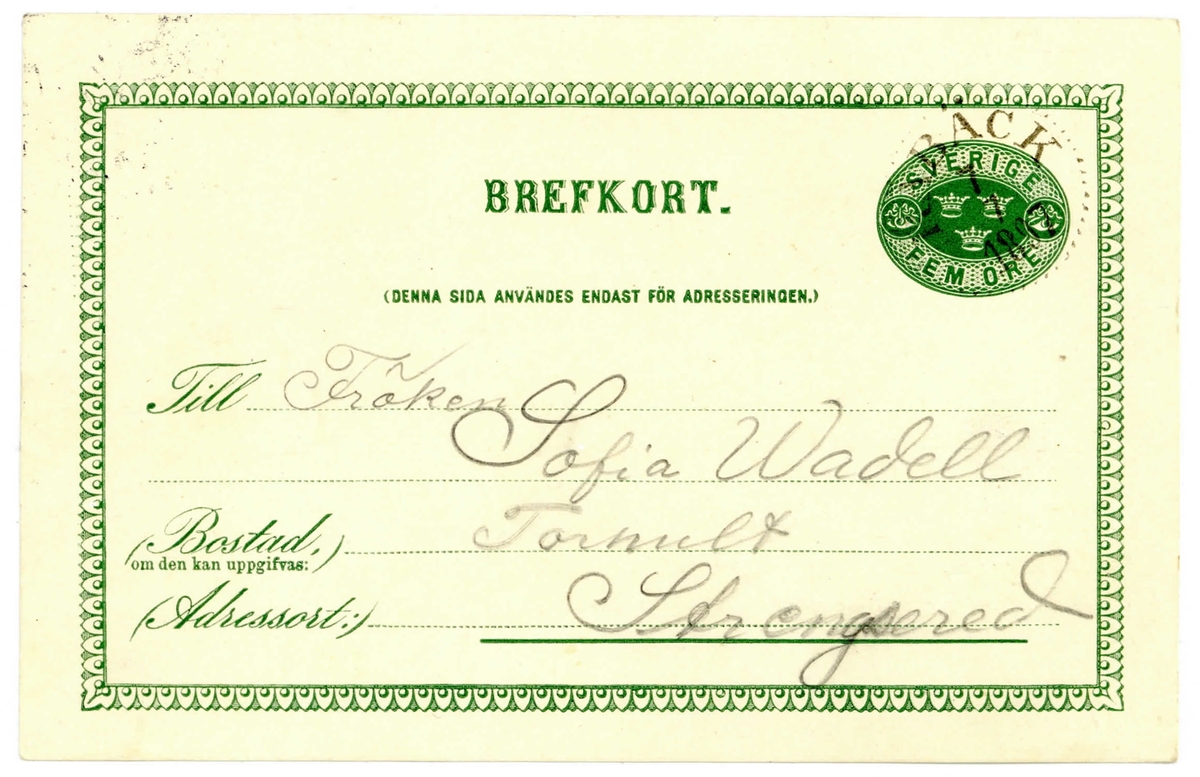 BÄCK
SVERIGE
FEM ÖRE
BREFKORT.
(DENNA SIDA ANVÄNDES ENDAST FÖR ADRESSERINGEN.)
Till Fröken
Sofia Wadell
(Bostad,) Tornult
om den kan uppgifvas:
(Adressort:) Strengsered